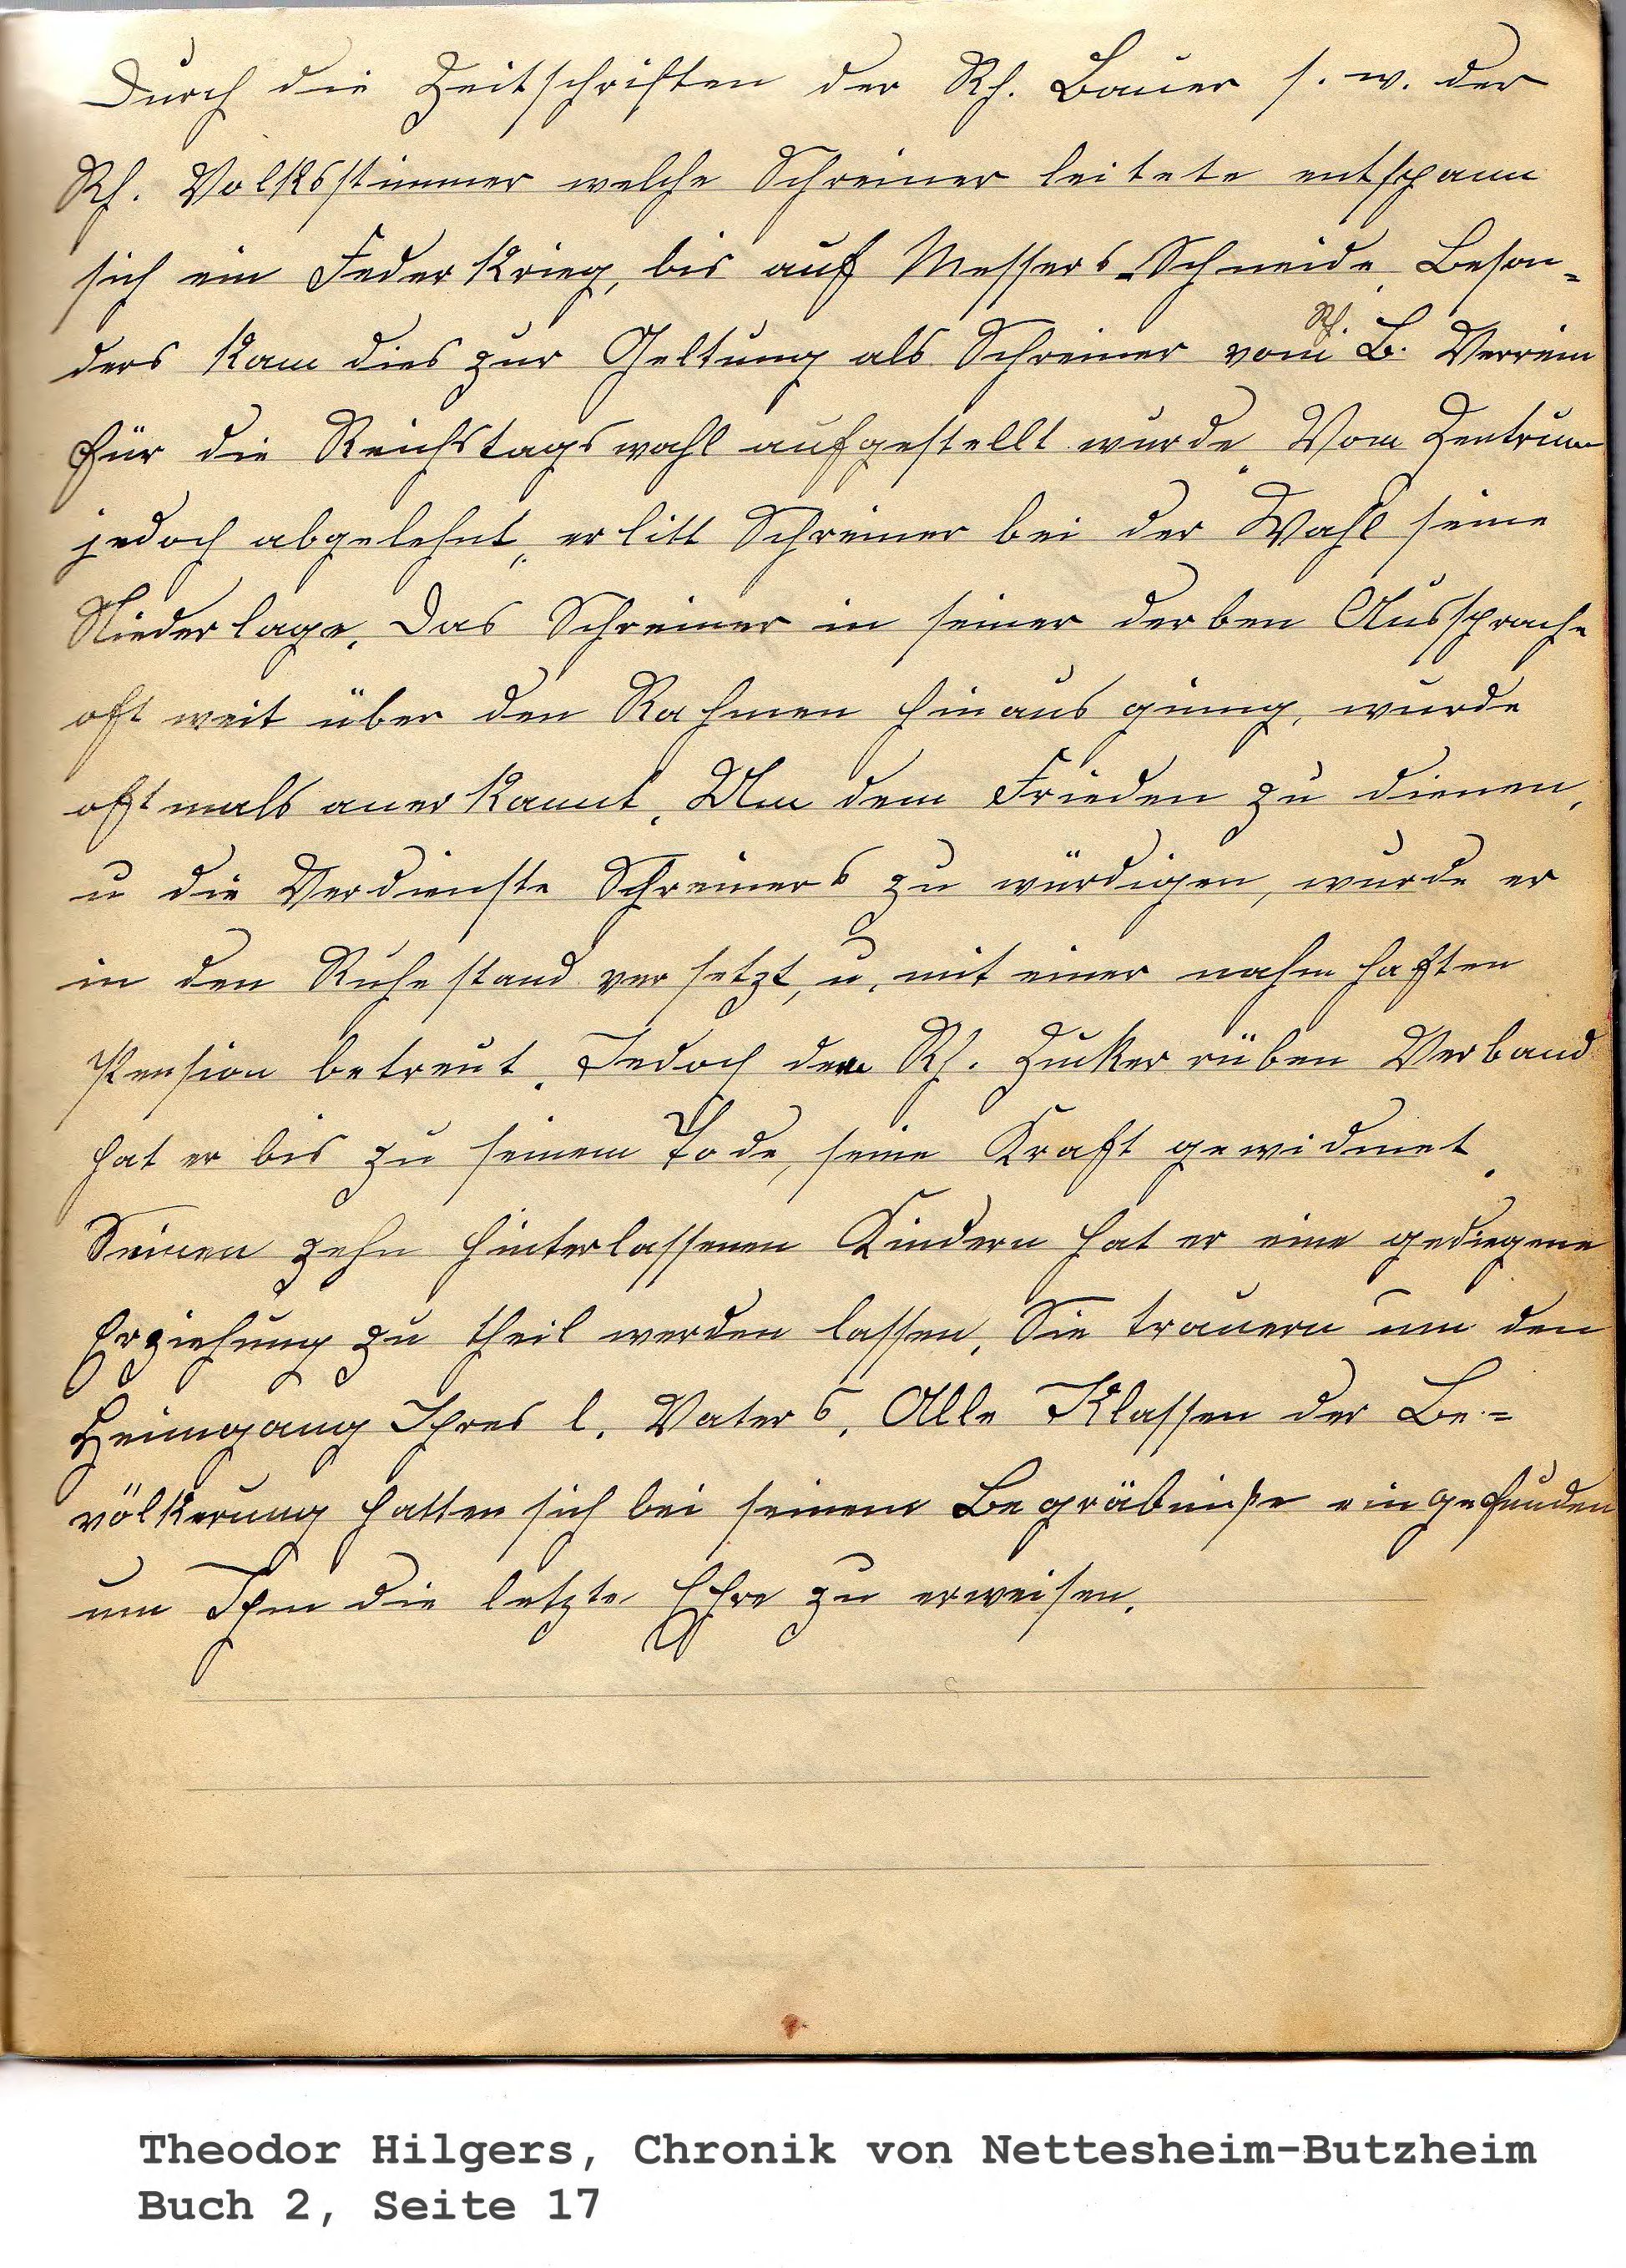 Durch die Zeitschriften der Rh. Bauer s. w. der
Rh. Volksstimmer welche Schreiner leitete entspann
sich ein Federkrieg, bis auf Messers-Schneide. Beson=
ders kam dies zur Geltung als Schreiner vom Rh. B. Verrein
für die Reichstagswahl aufgestellt wurde. Vom Zentrum
jedoch abgelehnt, erlitt Schreiner bei der Wahl seine
Niederlage. Das Schreiner in seiner derben Aussprache
oft weit über den Rahmen hinaus ginng, wurde
oftmals anerkannt. Um dem Frieden zu dienen,
u die Verdienste Schreiners zu würdigen, wurde er
in den Ruhestand versetzt, u. mit einer nahmhaften
Pension betreut. Jedoch dem Rh. Zuckerrüben Verband
hat er bis zu seinem Tode, seine Kraft gewidmet.
Seinen zehn hinterlassenen Kindern hat er eine gediegene
Erziehung zu theil werden lassen. Sie trauern um den
Heimgang Ihres l. Vaters. Alle Klassen der Be=
völkerung hatten sich bei seinem Begräbniße eingefunden
um Ihm die letzte Ehre zu erweisen.
Theodor Hilgers, Chronik von Nettesheim-Butzheim
Buch 2, Seite 17